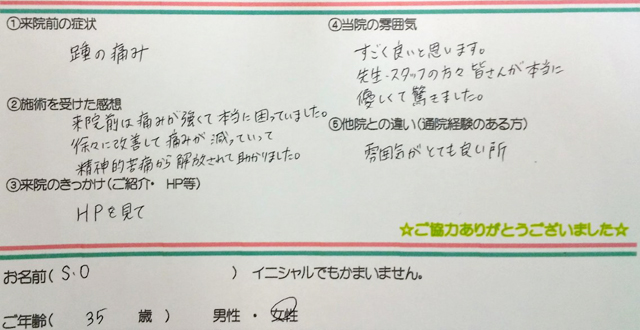 ①来院前の症状
踵の痛み
②施術を受けた感想
来院前は痛みが強くて本当に困っていました。
徐々に改善して痛みが減っていって
精神的苦痛から解放されて助かりました。
③来院のきっかけ(ご紹介・ HP等)
HPを見て
④当院の雰囲気
すごく良いと思います。
先生・スタッフの方々皆さんが本当に
優しくて驚きました。
⑤他院との違い(通院経験のある方)
雰囲気がとても良い所
☆ご協力ありがとうございました☆
お名前( S.O ) イニシャルでもかまいません。
ご年齢( 35 歳 ) 男性 ・ 女性